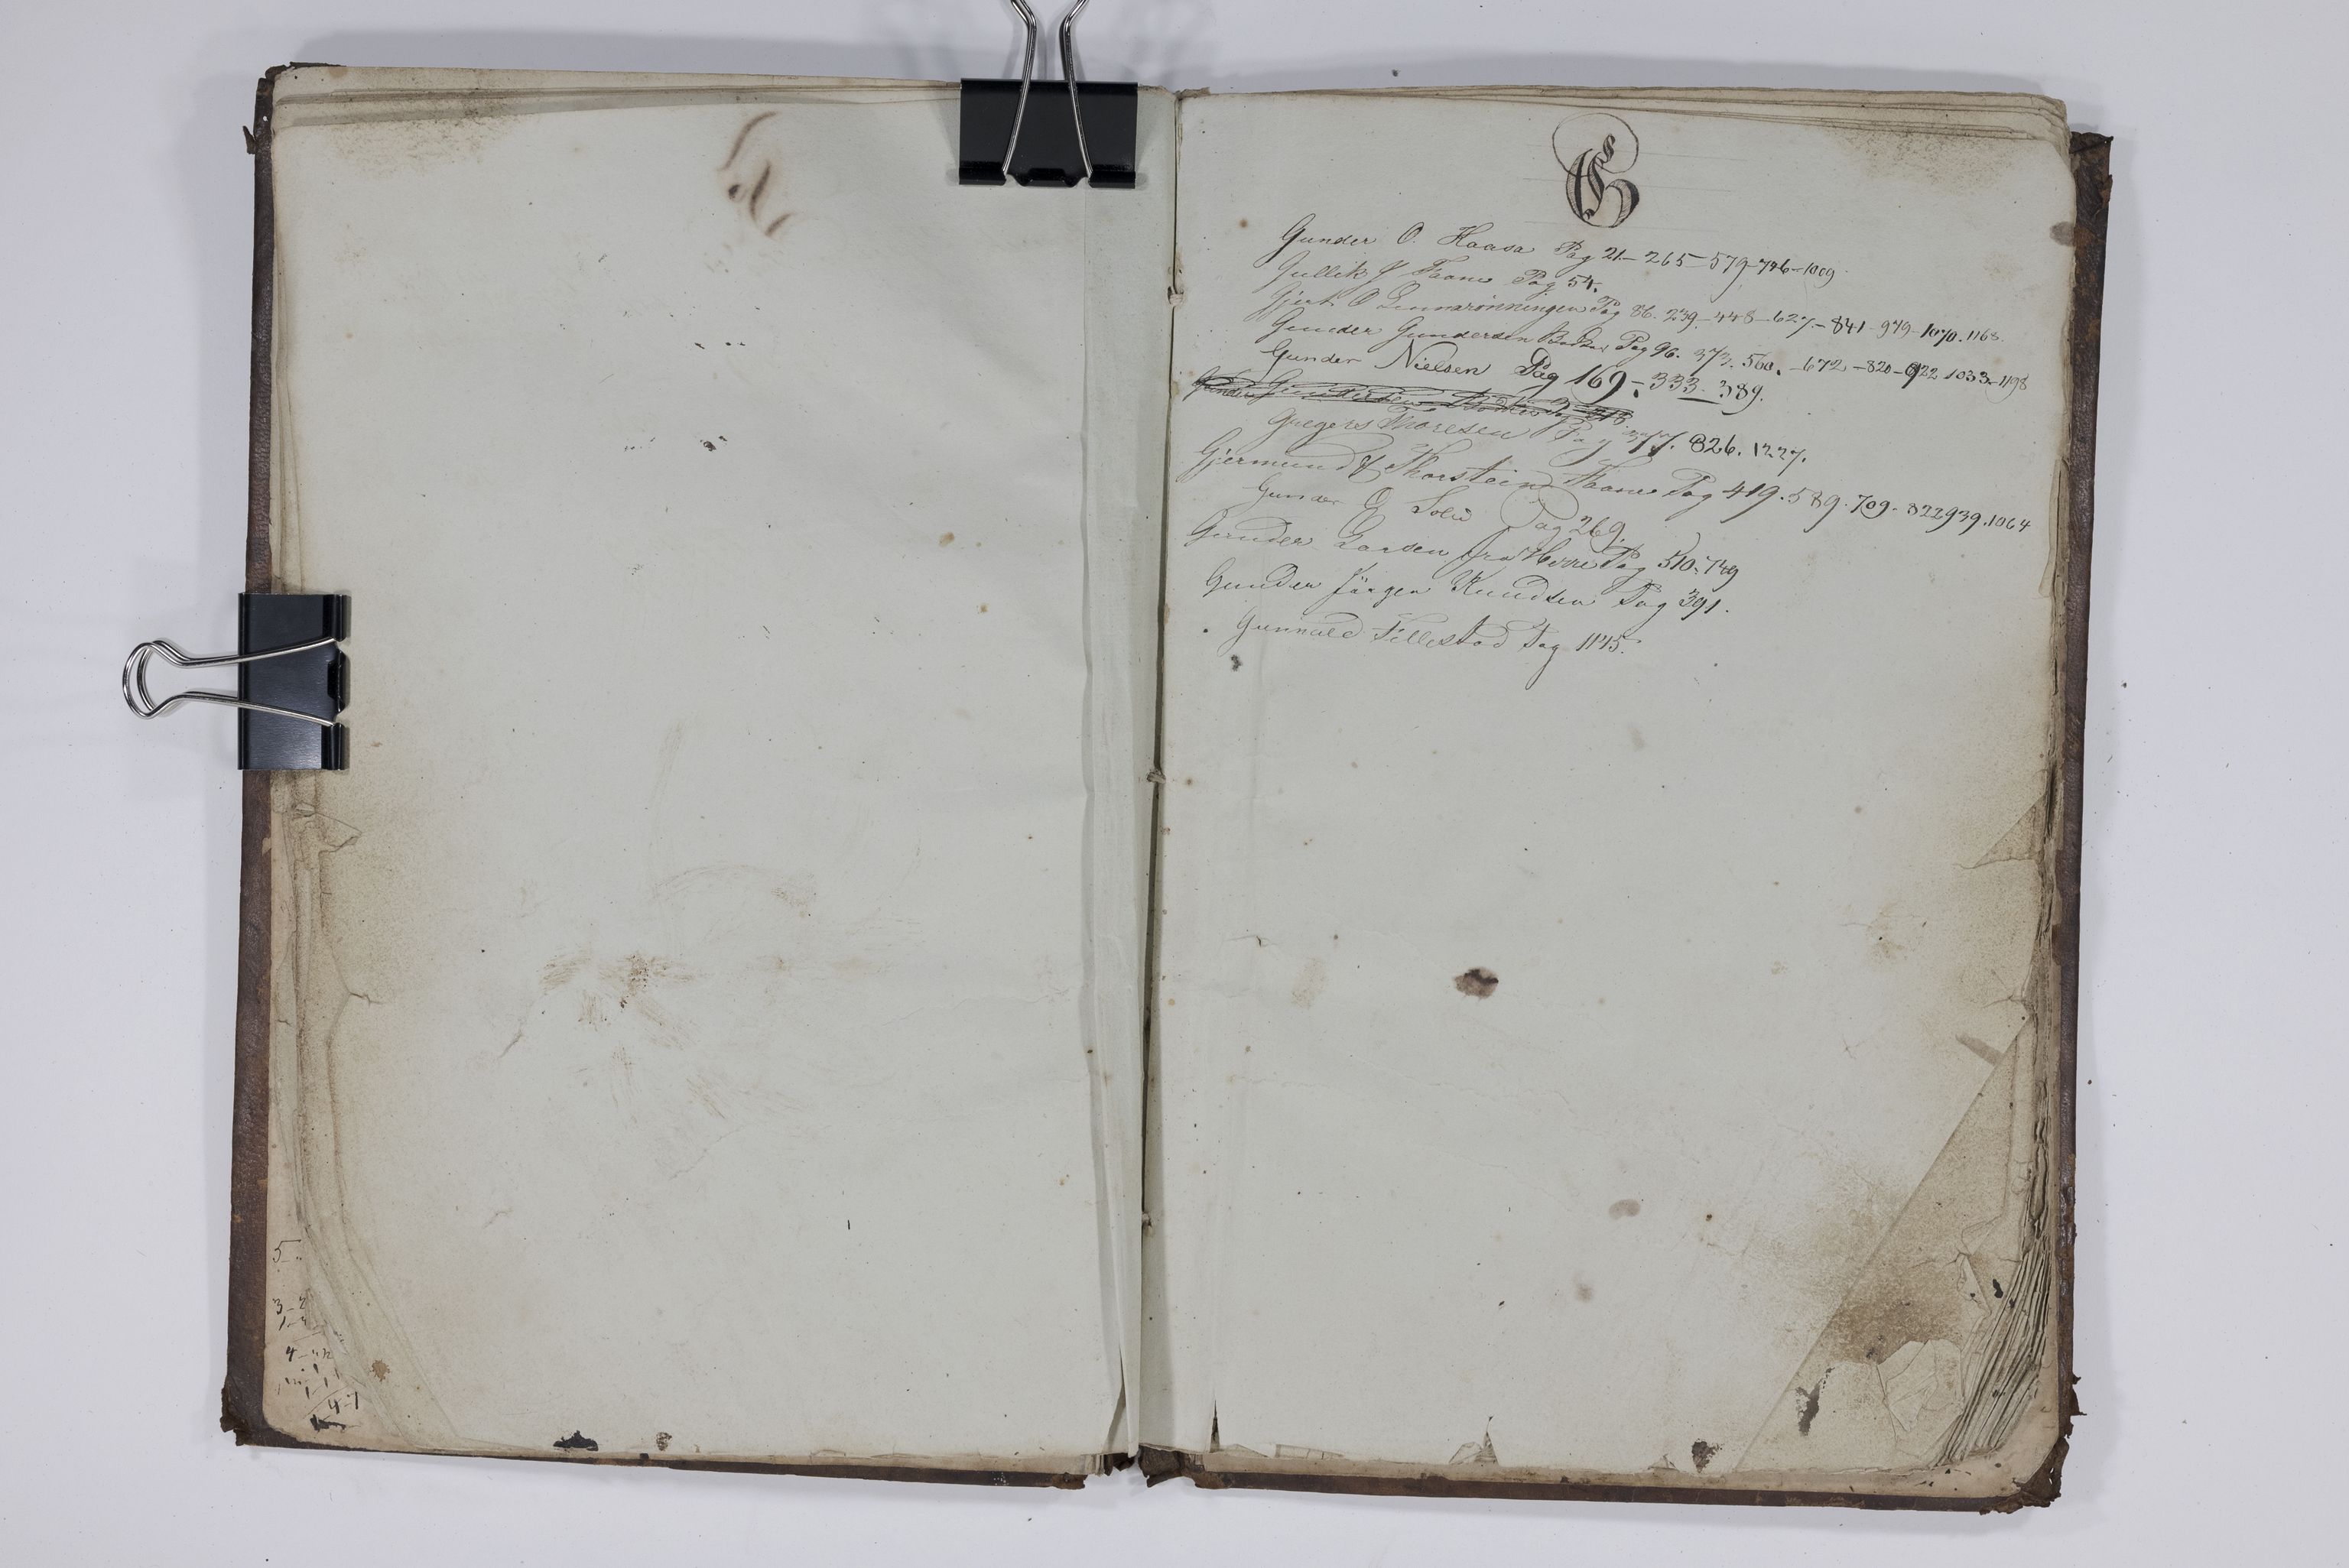 G
Gunder O. Haasa Pag 21 – 265 – 579 – 746 – 1009
Gullik J Taane Pag 54.
Gjert O Pag 86. 239 – 448 – 627 – 841 – 979 – 1070. 1168.
Gunder Gundersen Pag 96. 373. 560. – 672 – 820 – 922 1033 – 1198
Gunder Nielsen Pag 169 – 333 – 389.
Gunder Gundersen
Gregers Thoresen Pag 377. 826. 1227.
Gjermund & Thorstein Taane Pag 419. 589. 709. 822 939. 1064
Gunder O Solli Pag 269.
Gunder Larsen fra Herre Pag 510. 749
Gunder Jörgen Knudsen Pag 391.
Gunnuld Tillestad Pag 1145.
5
3 – 2
4 – 7